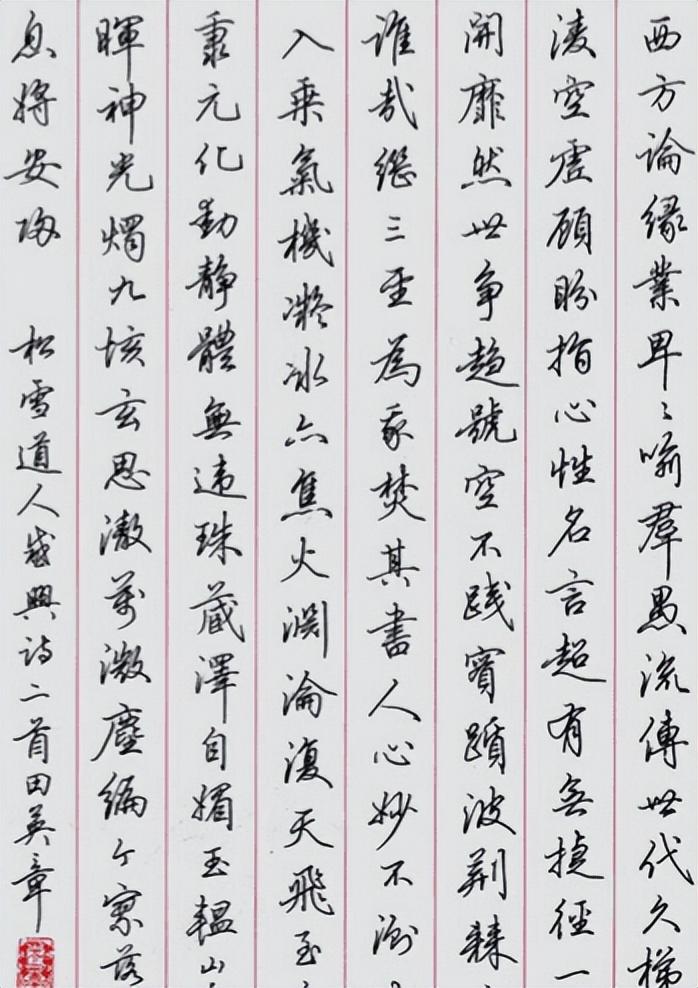 西方論緣業卑〻喻羣愚流傳世代久梯
凌空虛顧盼指心性名言超有無捷徑一
開靡然世爭趨號空不踐實躓彼荊棘
誰哉繼三聖為我焚其書人心妙不測
入乘氣機凝冰亦焦火淵淪復天飛至
秉元化動靜體無違珠藏澤自媚玉韞山
暉神光燭九垓玄思徹萬微塵編今寥落
息將安歸 松雪道人感興詩二首田英章